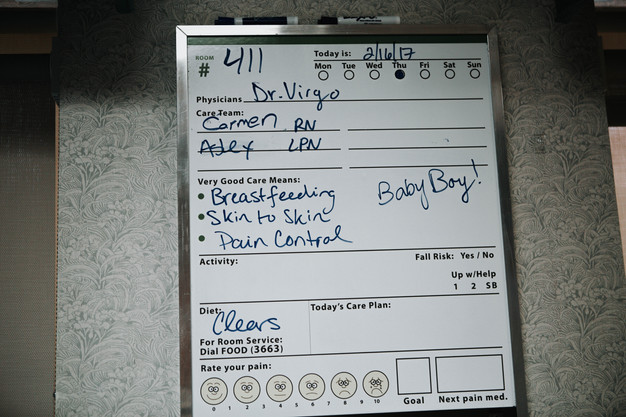 ROOM # 411
Today is: 2/16/17
Mon Tue Wed Thu Fri Sat Sun
Physicians Dr. Virgo
Care Team:
Carmen RN
Alex LPN
Very Good Care Means:
• Breastfeeding
• Skin to Skin
• Pain Control
Baby Boy!
Activity:
Fall Risk: Yes / No
Up w/Help
1 2 SB
Diet:
Clears
For Room Service:
Dial FOOD (3663)
Today's Care Plan:
Rate your pain:
0 1 2 3 4 5 6 7 8 9 10
Goal
Next pain med.